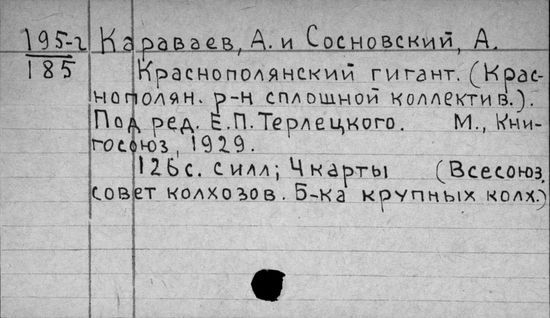 195-2 Караваев, А. и Сосновский, А.
185 Краснополянский гигант. (Крас-
нополян. р-н сплошной коллектив.).
Под ред. Е.П.Терлецкого. М., Кни-
госоюз, 1929.
126с. силл; 4карты (Всесоюз.
совет колхозов. Б-ка крупных колх.)